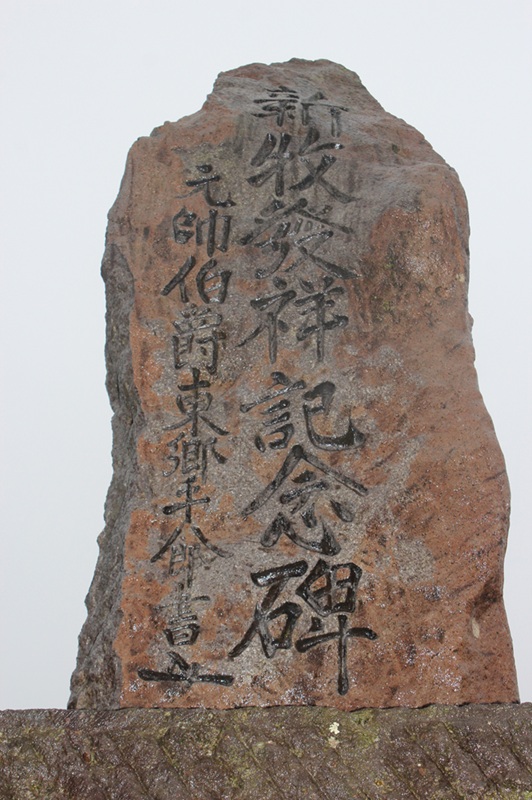 新牧發祥記念碑
元帥伯爵東郷平八郎書